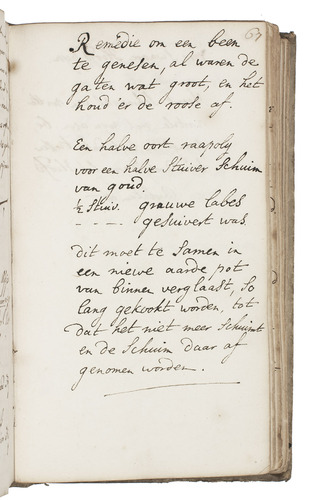 63
Remedie om een been
te genesen, al waren de
gaten wat groot, en het
houd 'er de roose af.
Een halve oort raapoly
voor een halve Stuiver Schuim
van goud.
½ Stuiv. grauwe labes
- - - - gesuivert was.
dit moet te Samen in
een niewe aarde pot
van binnen verglaast, So
lang gekookt worden, tot
dat het niet meer Schuimt
en de Schuim daar af
genomen worden.